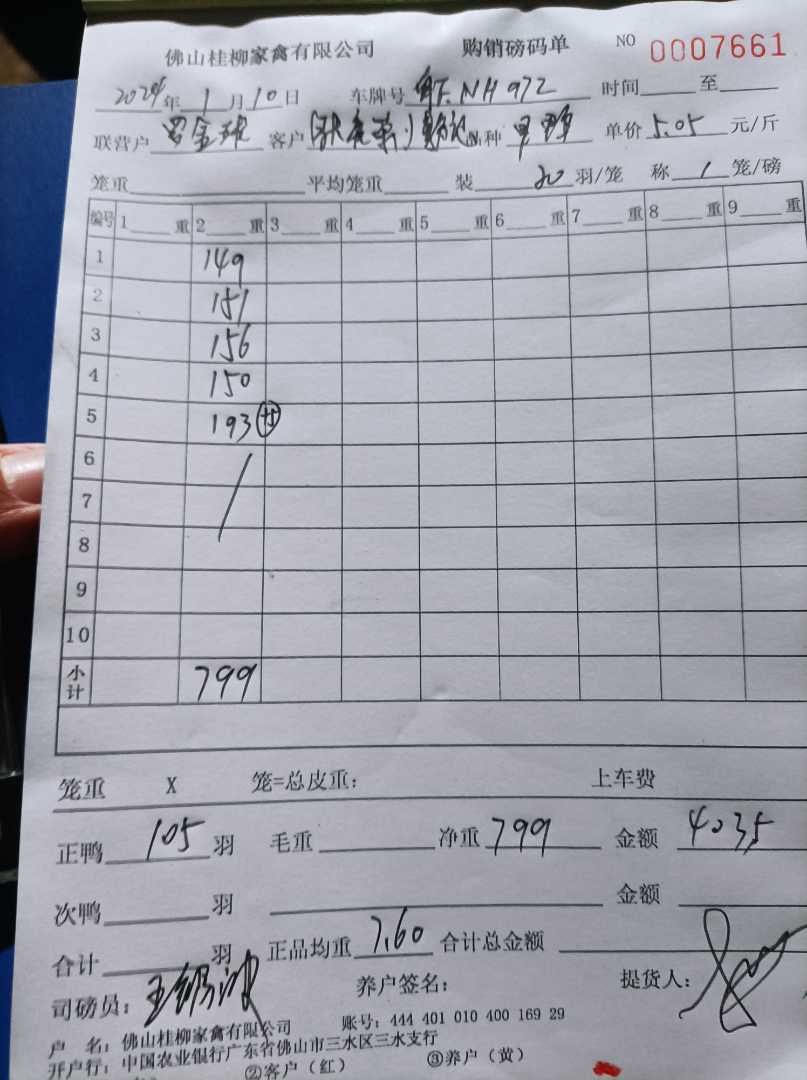 佛山桂柳家禽有限公司 购销磅码单 NO 0007661
2024年1月10日 车牌号 NH972 时间 至
联营户 罗金 客户 品种 单价 5.05 元/斤
笼重 平均笼重 装 20 羽/笼 称 1 笼/磅
编号 1 重 2 重 3 重 4 重 5 重 6 重 7 重 8 重 9 重
1 149
2 151
3 156
4 150
5 193 +5
6
7
8
9
10
小计 799
笼重 X 笼=总皮重: 上车费
正鸭 105 羽 毛重 净重 799 金额 4035
次鸭 羽 金额
合计 羽 正品均重 7.60 合计总金额
司磅员: 养户签名: 提货人:
户 名: 佛山桂柳家禽有限公司 账号: 444 401 010 400 169 29
开户行: 中国农业银行广东省佛山市三水区三水支行
②客户（红） ③养户（黄）